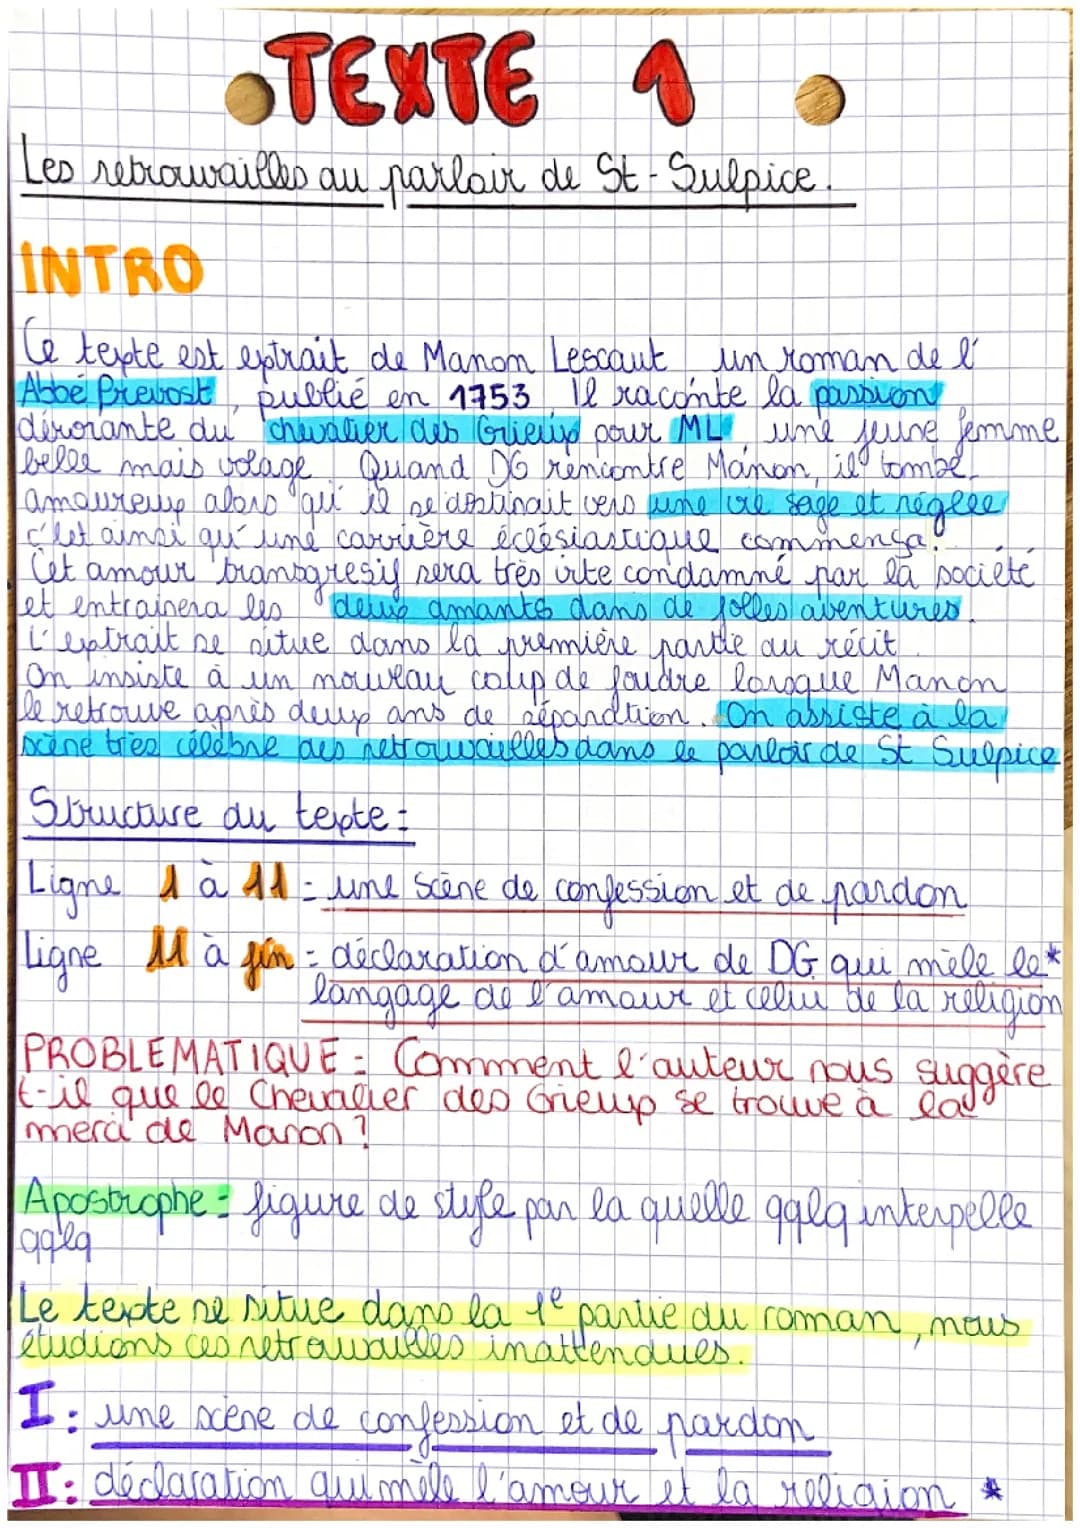 TEXTE 1
Les retrouvailles au parloir de St-Sulpice.
INTRO
Ce texte est extrait de Manon Lescaut un roman de l'
Abbé Prevost, publié en 1753. Il raconte la passion
dévorante du chevalier des Grieux pour ML, une jeune femme
belle mais volage. Quand DG rencontre Manon, il tombe
amoureux alors qu'il se destinait vers une vie sage et réglée
c'est ainsi qu'une carrière éclésiastique commença.
Cet amour transgresif sera très vite condamné par la société
et entrainera les deux amants dans de folles aventures.
L'extrait se situe dans la première partie du récit.
On insiste à un nouveau coup de foudre lorsque Manon
le retrouve après deux ans de séparation. On assiste à la
scène très célèbre des retrouvailles dans le parloir de St Sulpice
Structure du texte :
Ligne 1 à 11 = une scène de confession et de pardon
Ligne 11 à fin = déclaration d'amour de DG qui mèle le*
langage de l'amour et celui de la religion
PROBLEMATIQUE = Comment l'auteur nous suggère
t-il que le Chevalier des Grieux se trouve à la
merci de Manon ?
Apostrophe = figure de style par la quelle qqlq interpelle
qqlq
Le texte se situe dans la 1e partie du roman, nous
étudions ces retrouvailles inattendues.
I : une scène de confession et de pardon
II : déclaration qui mèle l'amour et la religion *